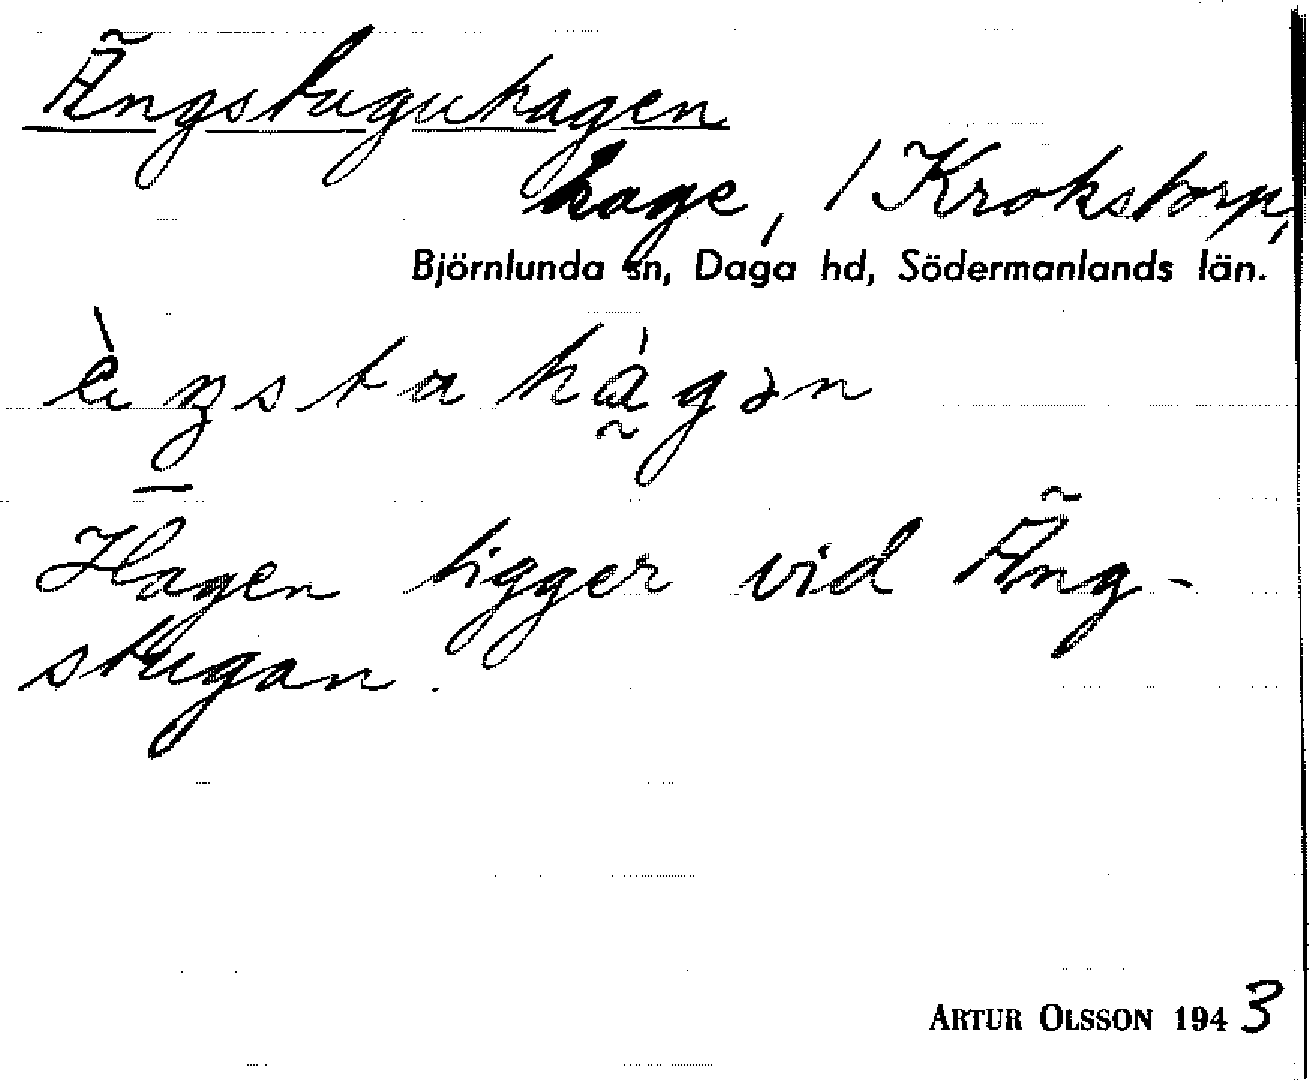 Ängstuguhagen
hage, 1 Krokstorp,
Björnlunda sn, Daga hd, Södermanlands län.
Hagen ligger vid Äng-
stugan.
ARTUR OLSSON 1943